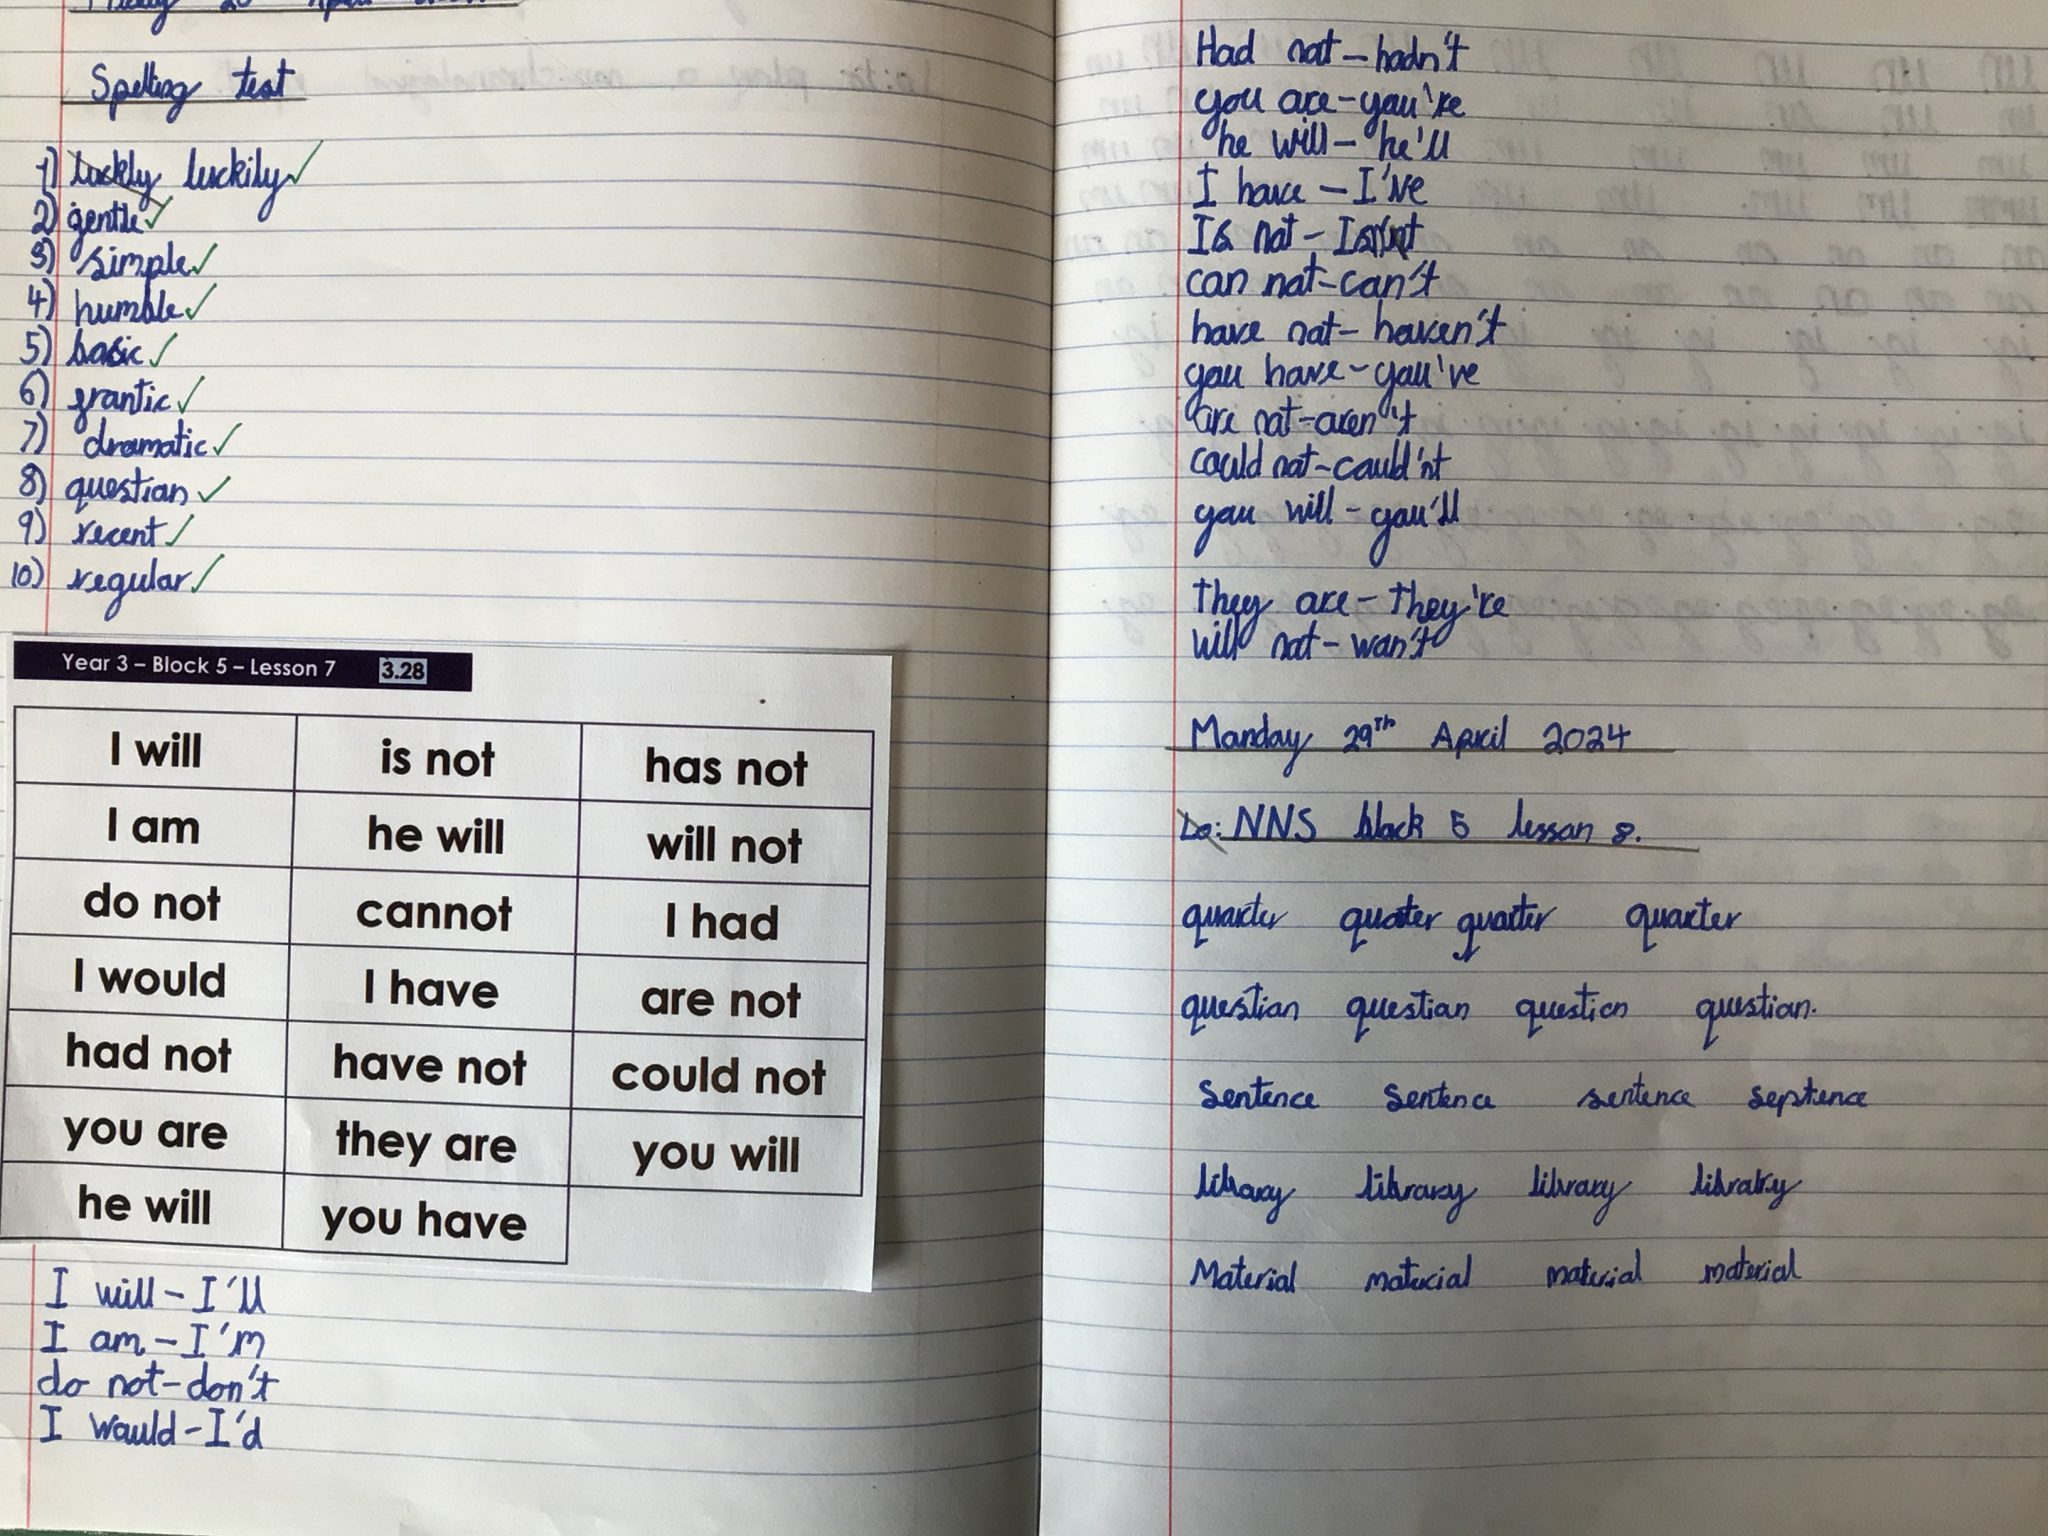 Spelling test
1) luckly luckily
2) gentle
3) simple
4) humble
5) basic
6) frantic
7) dramatic
8) question
9) recent
10) regular
Year 3 – Block 5 – Lesson 7 3.28
I will is not has not
I am he will will not
do not cannot I had
I would I have are not
had not have not could not
you are they are you will
he will you have
I will – I'll
I am – I'm
do not – don't
I would – I'd
Had not – hadn't
you are – you're
he will – he'll
I have – I've
Is not –
can not – can't
have not – haven't
you have – you've
are not – aren't
could not – could'nt
you will – you'll
they are – they're
will not – won't
Monday 29th April 2024
Lo: NNS block 5 lesson 8.
quarter quater quarter quarter
question question question question.
Sentence Sentence sentence
library library library
Material material material material